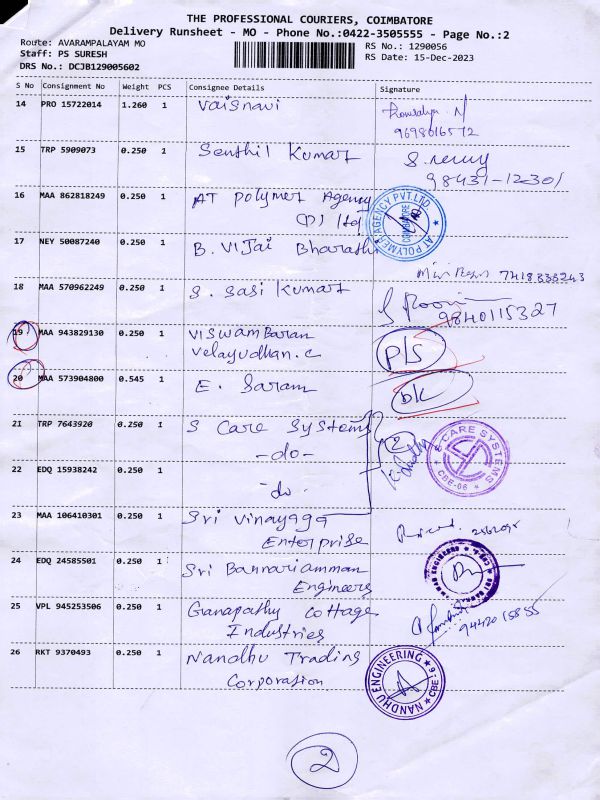 THE PROFESSIONAL COURIERS, COIMBATORE
Delivery Runsheet - MO - Phone No.:0422-3505555 - Page No.:2
Route: AVARAMPALAYAM MO
RS No.: 1290056
Staff: PS SURESH
RS Date: 15-Dec-2023
DRS No.: DCJB129005602
S No Consignment No Weight PCS Consignee Details Signature
14 PRO 15722014 1.260 1 Vaisnavi
9698616572
15 TRP 5909073 0.250 1 Senthil Kumar
98431-12301
16 MAA 862818249 0.250 1 AT Polymer Agency
(P) Ltd
AT POLYMER AGENCY PVT.LTD.
COIMBATORE
17 NEY 50087240 0.250 1 B. Vijai Bharathi
7418333343
18 MAA 570962249 0.250 1 S. Sasi Kumar
9840115327
19 MAA 943829130 0.250 1 Viswambaran
Velayudhan.C
P/S
20 MAA 573904800 0.545 1 E. Saram
DK
21 TRP 7643920 0.250 1 S Care Systems
-do-
2
S-CARE SYSTEMS
CBE-06
22 EDQ 15938242 0.250 1
-do-
23 MAA 106410301 0.250 1 Sri Vinayaga
Enterprise
24 EDQ 24585501 0.250 1 Sri Bannariamman
Engineers
25 VPL 945253506 0.250 1 Ganapathy Cottage
Industries
94420 15855
26 RKT 9370493 0.250 1 Nandhu Trading
Corporation
NANDHU ENGINEERING
CBE
2